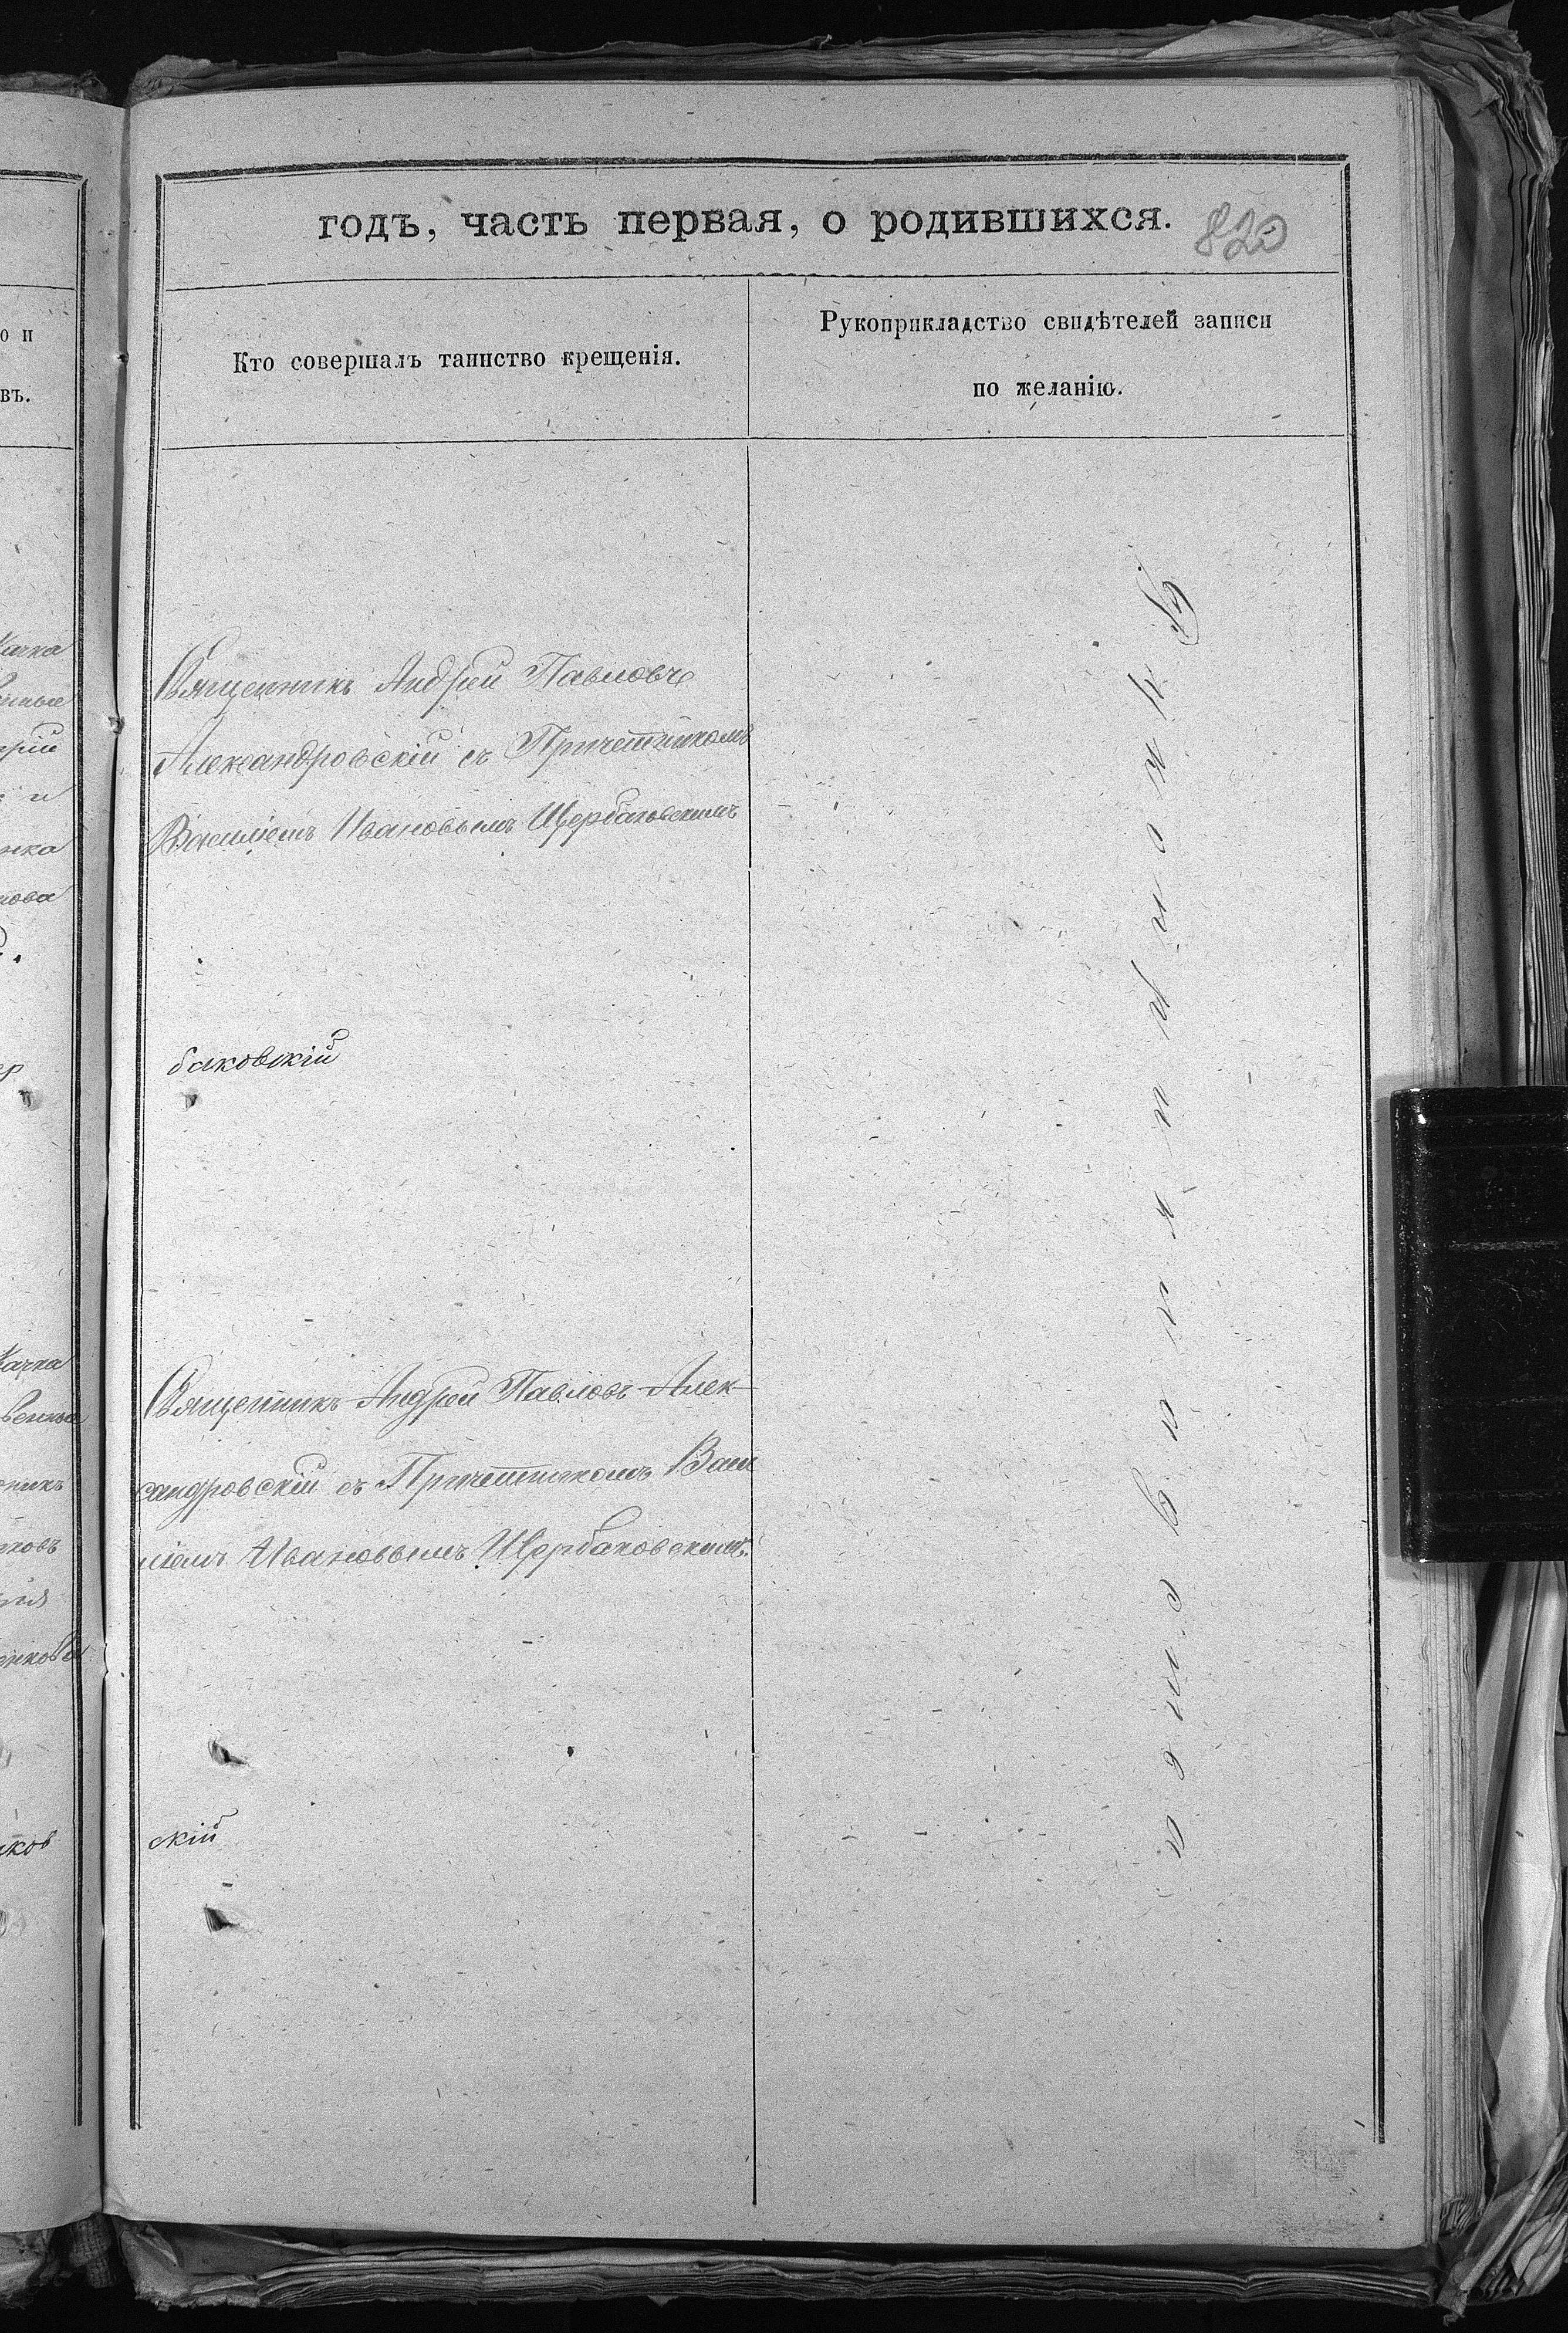 годъ, часть первая, о родившихся.
820
Кто совершалъ таинство крещенія.
Рукоприкладство свидѣтелей записи
по желанію.
Священникъ Андрей Павловъ
Александровскій съ Причетникомъ
Василіемъ Ивановымъ Щербаковскимъ
баковскій
Священникъ Андрей Павловъ Алек
сандровскій съ Причетникомъ Васи
ліемъ Ивановымъ Щербаковскимъ.
скій
Рукоприкладства
о и
въ.